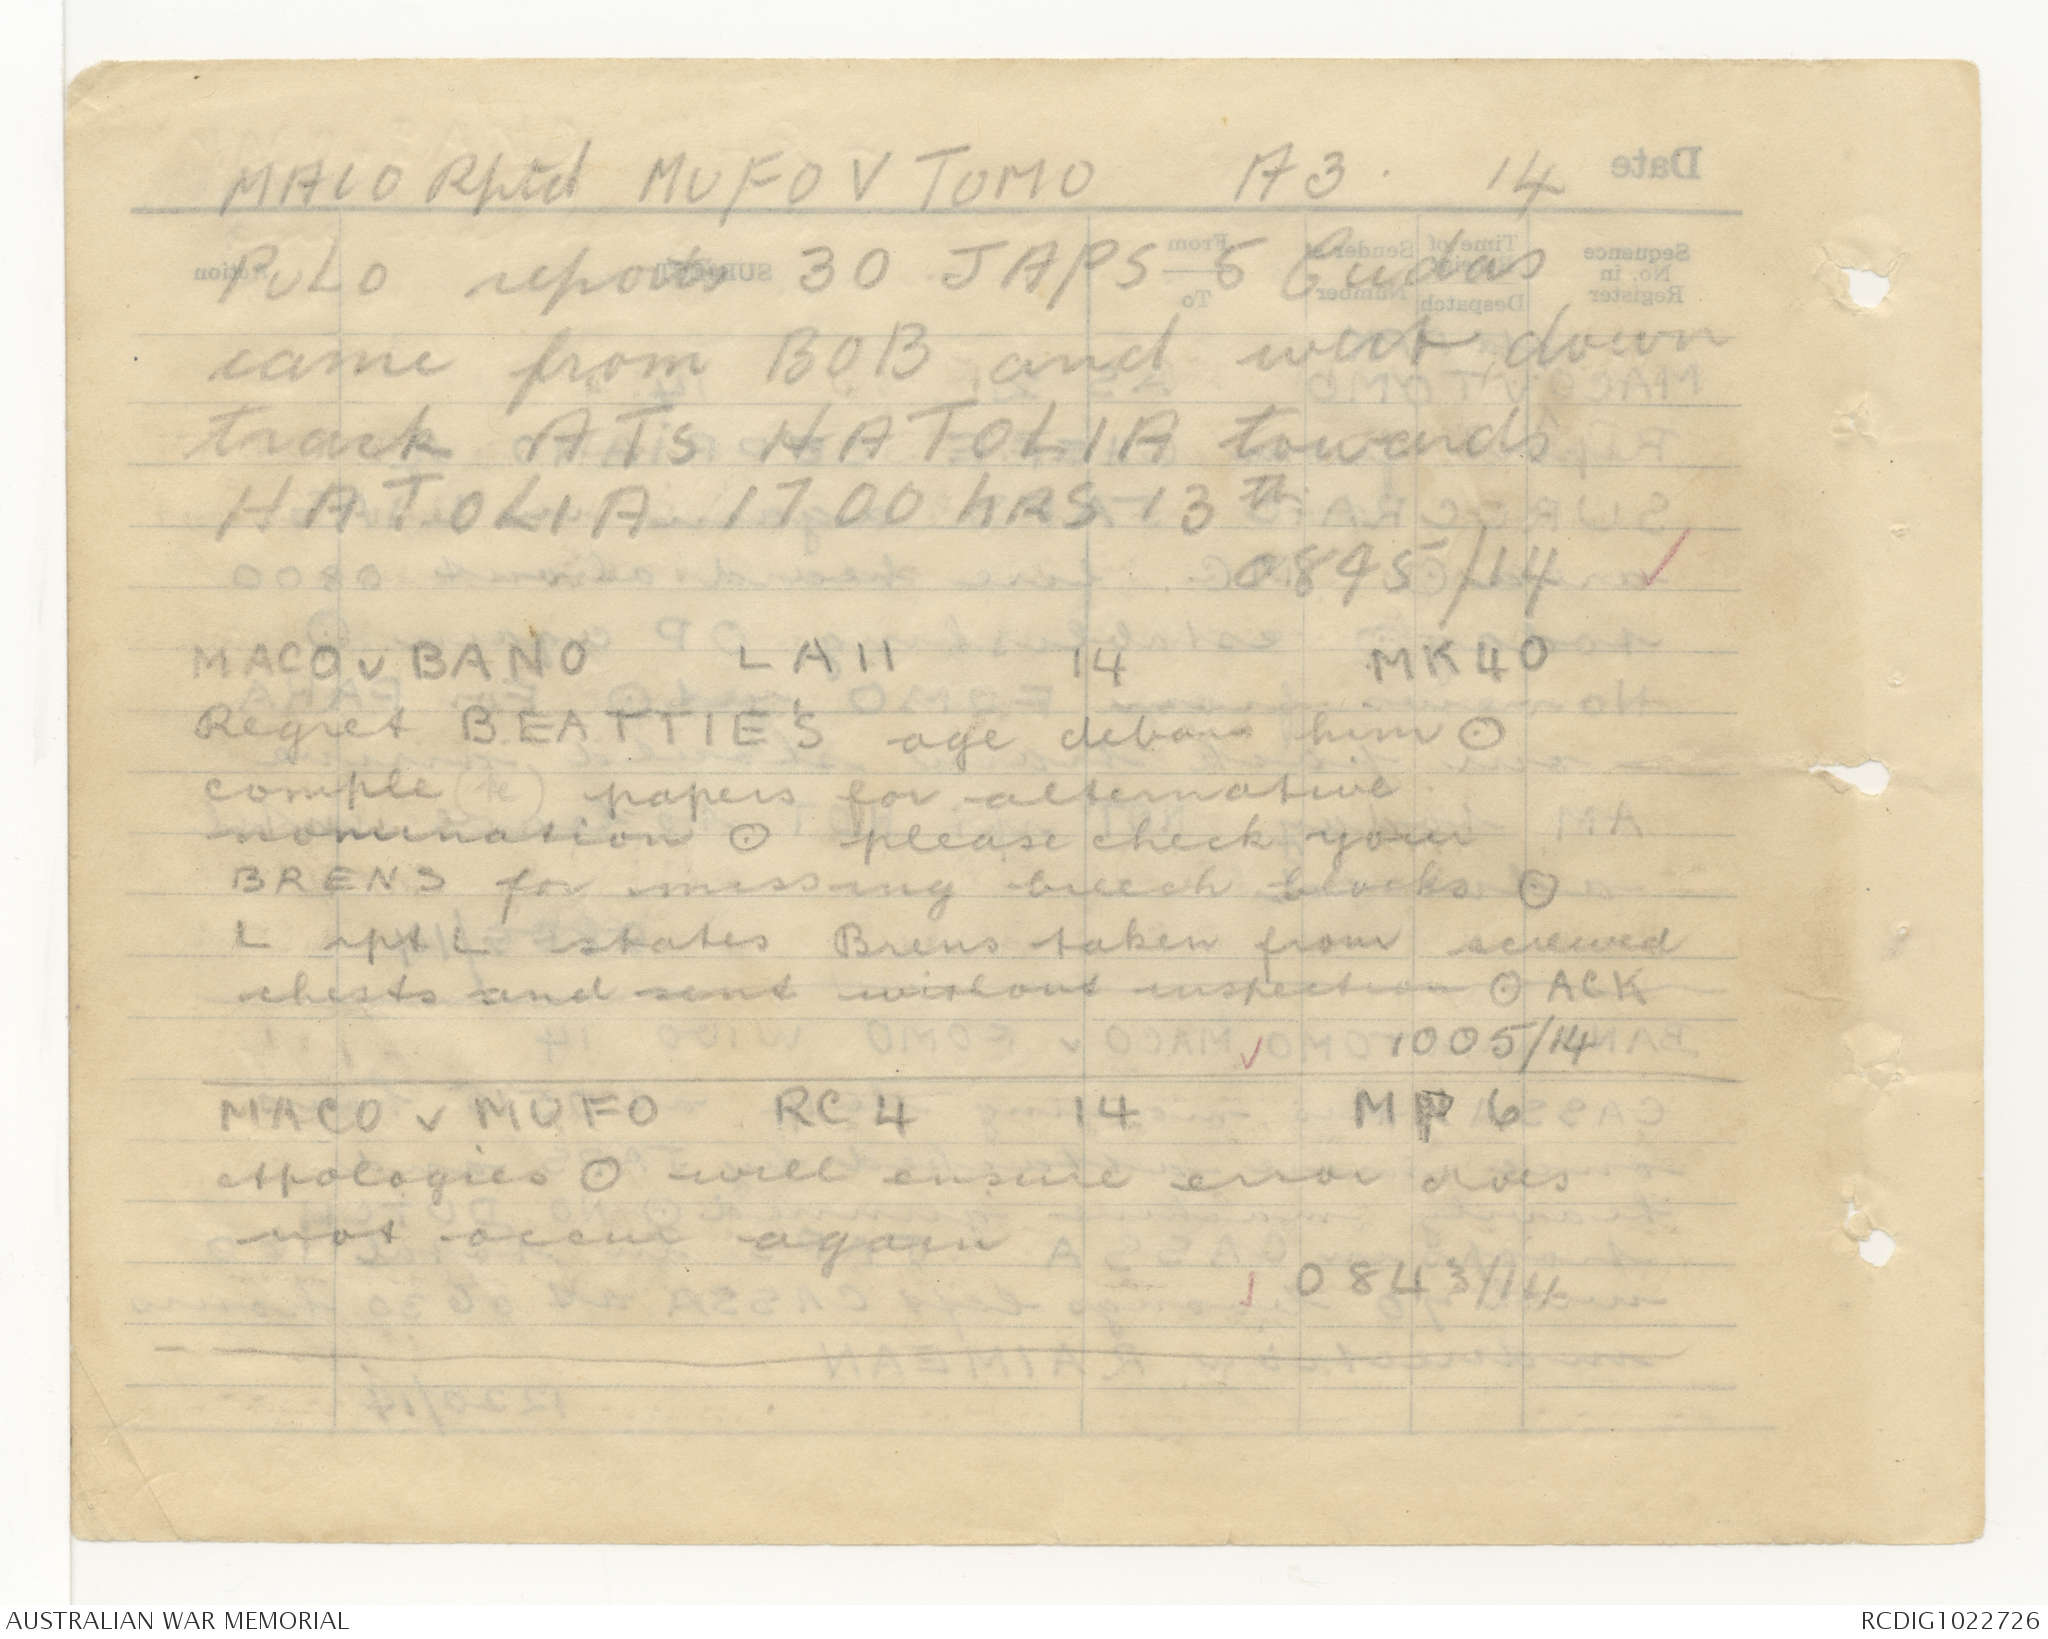 MACO Rptd MUFO V TOMO A3. 14
PULO reports 30 JAPS 5 Cudas
came from BOB and went down
track ATS HATOLIA towards
HATOLIA 1700 hRS 13th
0845/14 ✓
MACO v BANO LA11 14 MK40
Regret BEATTIE'S age debars him ⊙
comple (te) papers for alternative
nomination ⊙ please check your
BRENS for missing breech blocks ⊙
L rpt L states Brens taken from screwed
chests and sent without inspection ⊙ ACK
✓ 1005/14
MACO v MUFO RC 4 14 MP 6
Apologies ⊙ will ensure error does
not occur again
✓ 0843/14
AUSTRALIAN WAR MEMORIAL
RCDIG1022726